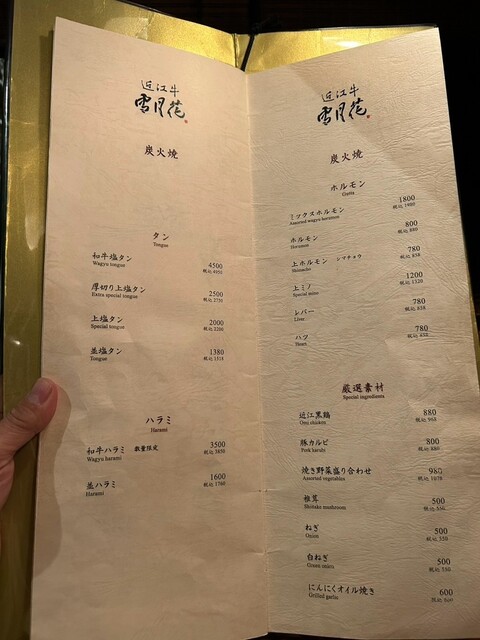 近江牛
雪月花
炭火焼
タン
Tongue
和牛塩タン 4500
Wagyu tongue 税込 4950
厚切り上塩タン 2500
Extra special tongue 税込 2750
上塩タン 2000
Special tongue 税込 2200
並塩タン 1380
Tongue 税込 1518
ハラミ
Harami
和牛ハラミ 数量限定 3500
Wagyu harami 税込 3850
並ハラミ 1600
Harami 税込 1760
近江牛
雪月花
炭火焼
ホルモン
Gutta
ミックスホルモン 1800
Assorted wagyu horumon 税込 1980
ホルモン 800
Horumon 税込 880
上ホルモン シマチョウ 780
Shimacho 税込 858
上ミノ 1200
Special mino 税込 1320
レバー 780
Liver 税込 858
ハツ 780
Heart 税込 858
厳選素材
Special ingredients
近江黒鶏 880
Omi chicken 税込 968
豚カルビ 800
Pork karubi 税込 880
焼き野菜盛り合わせ 980
Assorted vegetables 税込 1078
椎茸 500
Shiitake mushroom 税込 550
ねぎ 500
Onion 税込 550
白ねぎ 500
Green onion 税込 550
にんにくオイル焼き 600
Grilled garlic 税込 660